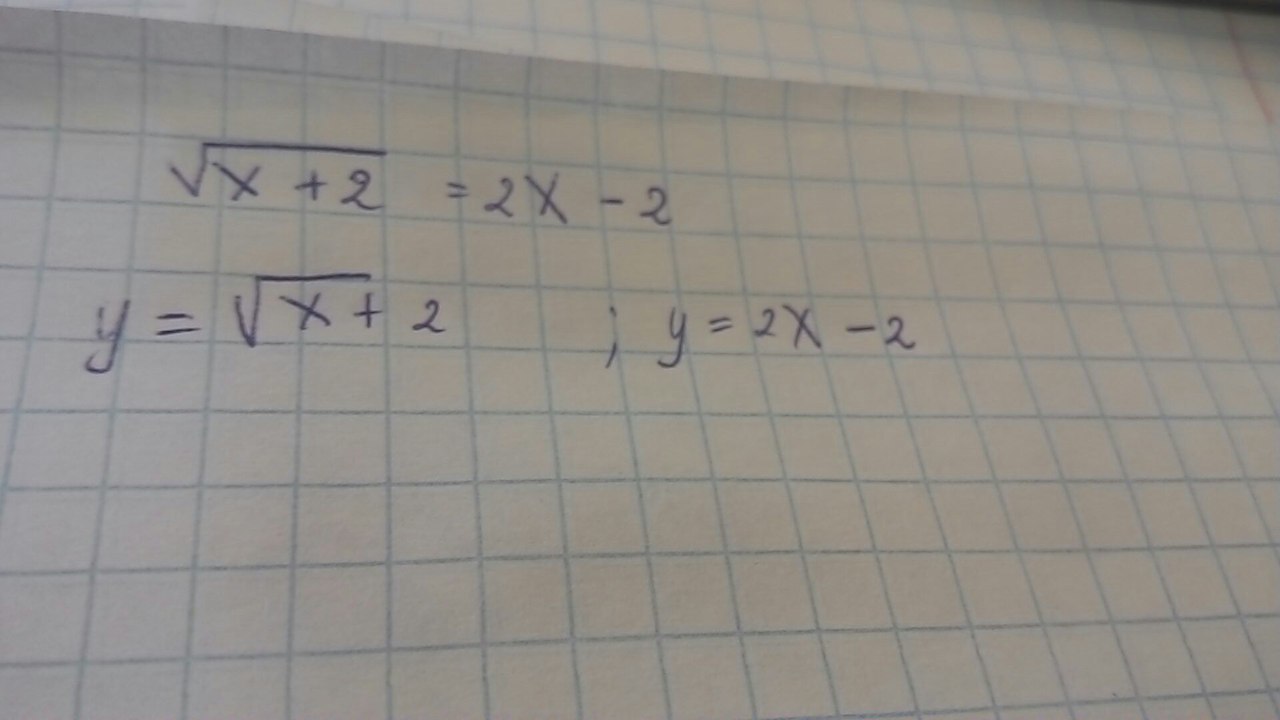 √(x + 2) = 2x - 2
y = √(x +) 2 ; y = 2x - 2